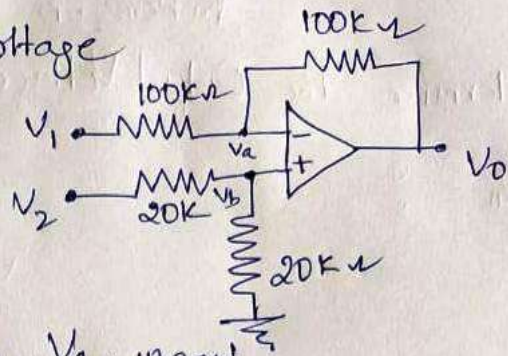 oltage
100KΩ
100KΩ
V1
va
-
+
V0
V2
20K
vb
20KΩ